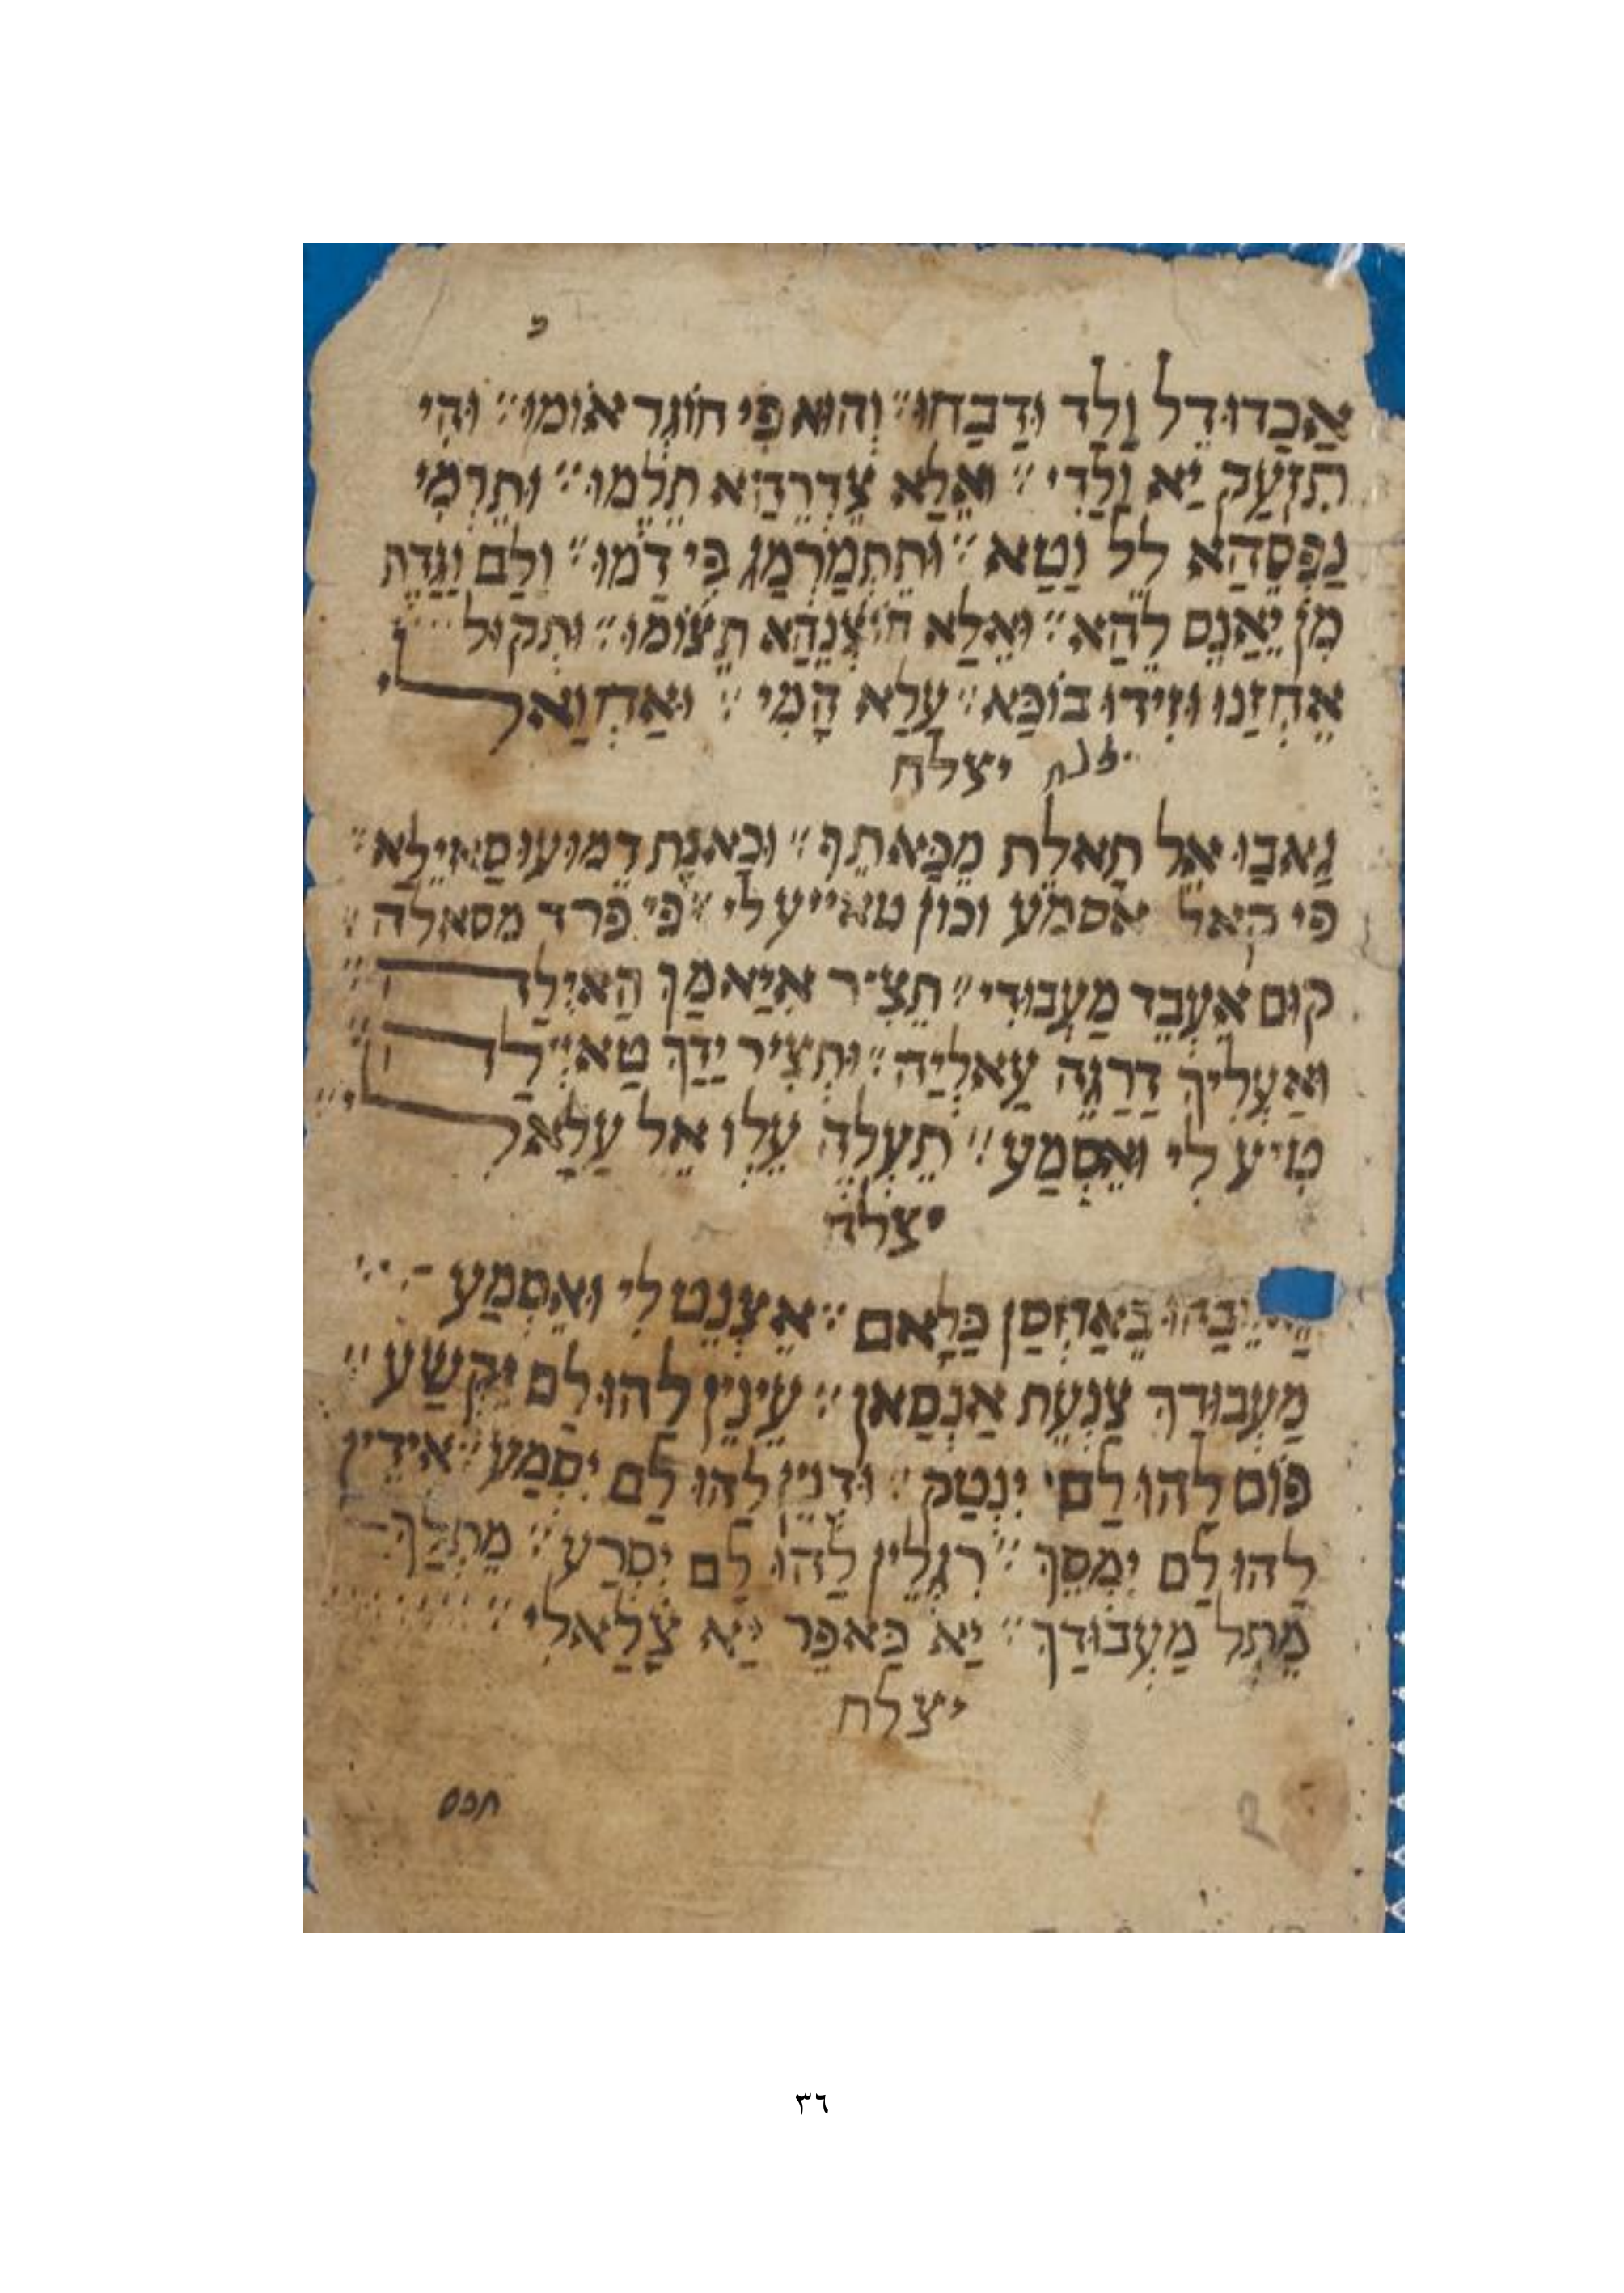 אַכַדוּ דֵל וַלַד וּדַבַחוּ״ וְהוּא פִי חוֹגְר אוֹמוּ״ וּהִי
תִזְעַק יַא וַלַדִי״ וּאֵלַא צֵדְרֵהַא תֵלֵמוּ״ וּתֵרְמִי
נַפְסֵהַא לֵל וַטַא״ וּתֵתְמַרְמַג פִי דַמוּ״ וּלַם וַגַדֵת
מִן יֵאַנֵס לֵהַא״ וּאֵלַא חוֹצְנֵהַא תֵצוֹמוּ״ וּתְקוּל
אֵחְזַנוּ וּזִידוּ בוֹכַּא״ עַלַא הָמִי״ וּאַחְוַאלִי
יצלח
גַאבַוּ אֵל תַאלֵת מֵכַּאתֵף״ וּכַאנֵת דֵמוּעוּ סַאיֵלַא״
פי קאל אסמע וכון טאייע לי״ פי פרד מסאלה״
קוּם אֵעְבֵד מַעְבוּדִי״ תֵצִיר אִיַאמַךּ הַאיְלַה״
וּאַעְלִיךּ דַרַגֵה עַאלְיַה״ וּתְצִיר יַדַךּ טַאיְלַה״
טִיע לִי וּאֵסְמַע״ תֵעְלֵה עֵלְו אֵל עַלַאלִי״
יצלח
בַאַחְסַן כַּלַאם״ אֵצְנֵט לִי וּאֵסְמַע
מַעְבוּדַךּ צַנְעֵת אַנְסַאן״ עֵינֵין לַהוּ לַם יִקְשַע״
פוֹם לַהוּ לַם יִנְטַק״ וּדְנֵין לַהוּ לַם יִסְמַע״ אִידֵין
לַהוּ לַם יִמְסֵךּ״ רִגְלֵין לַהוּ לַם יִסְרַע״ מֵתְלַךּ
מֵתְל מַעְבוּדַךּ״ יַא כַּאפֵר יַא צַלַאלִי״
יצלח
חכם
٣٦